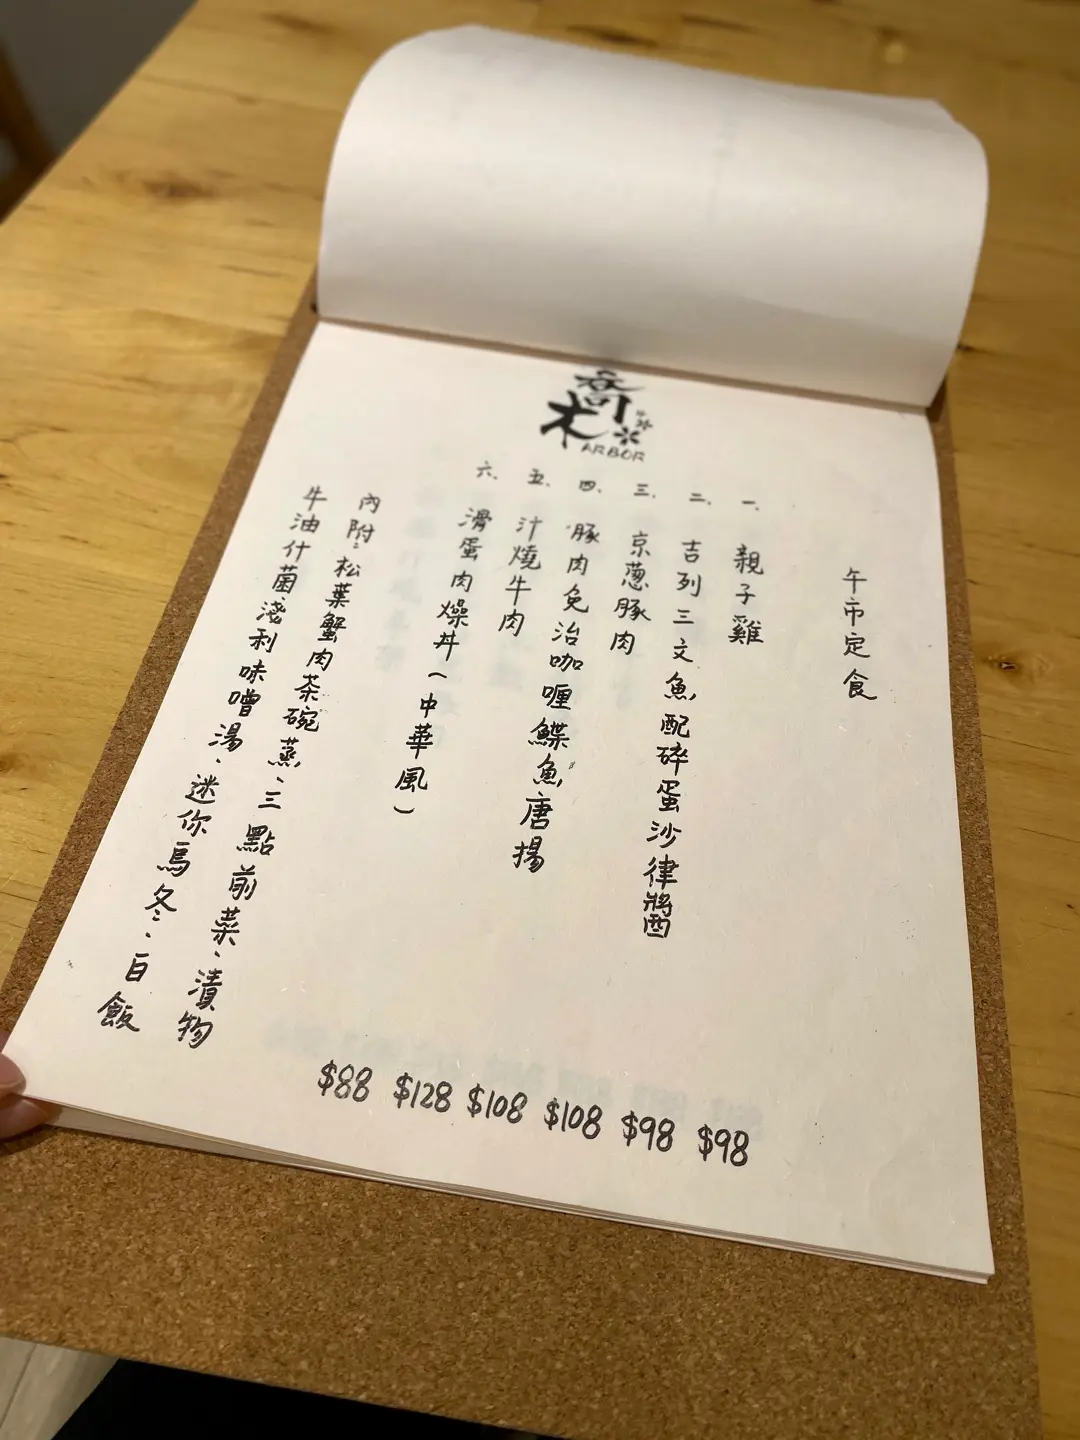 喬木
ARBOR
午市定食
一、親子雞 $98
二、吉列三文魚配碎蛋沙律醬 $98
三、京蔥豚肉 $108
四、豚肉免治咖喱鰈魚唐揚 $108
五、汁燒牛肉 $128
六、滑蛋肉燥丼(中華風) $88
內附:松葉蟹肉茶碗蒸、三點前菜、漬物
牛油什菌淺利味噌湯、迷你烏冬、白飯